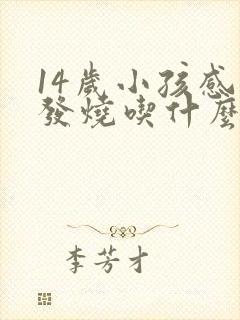 14歲小孩感
發燒喫什麼
李芳才